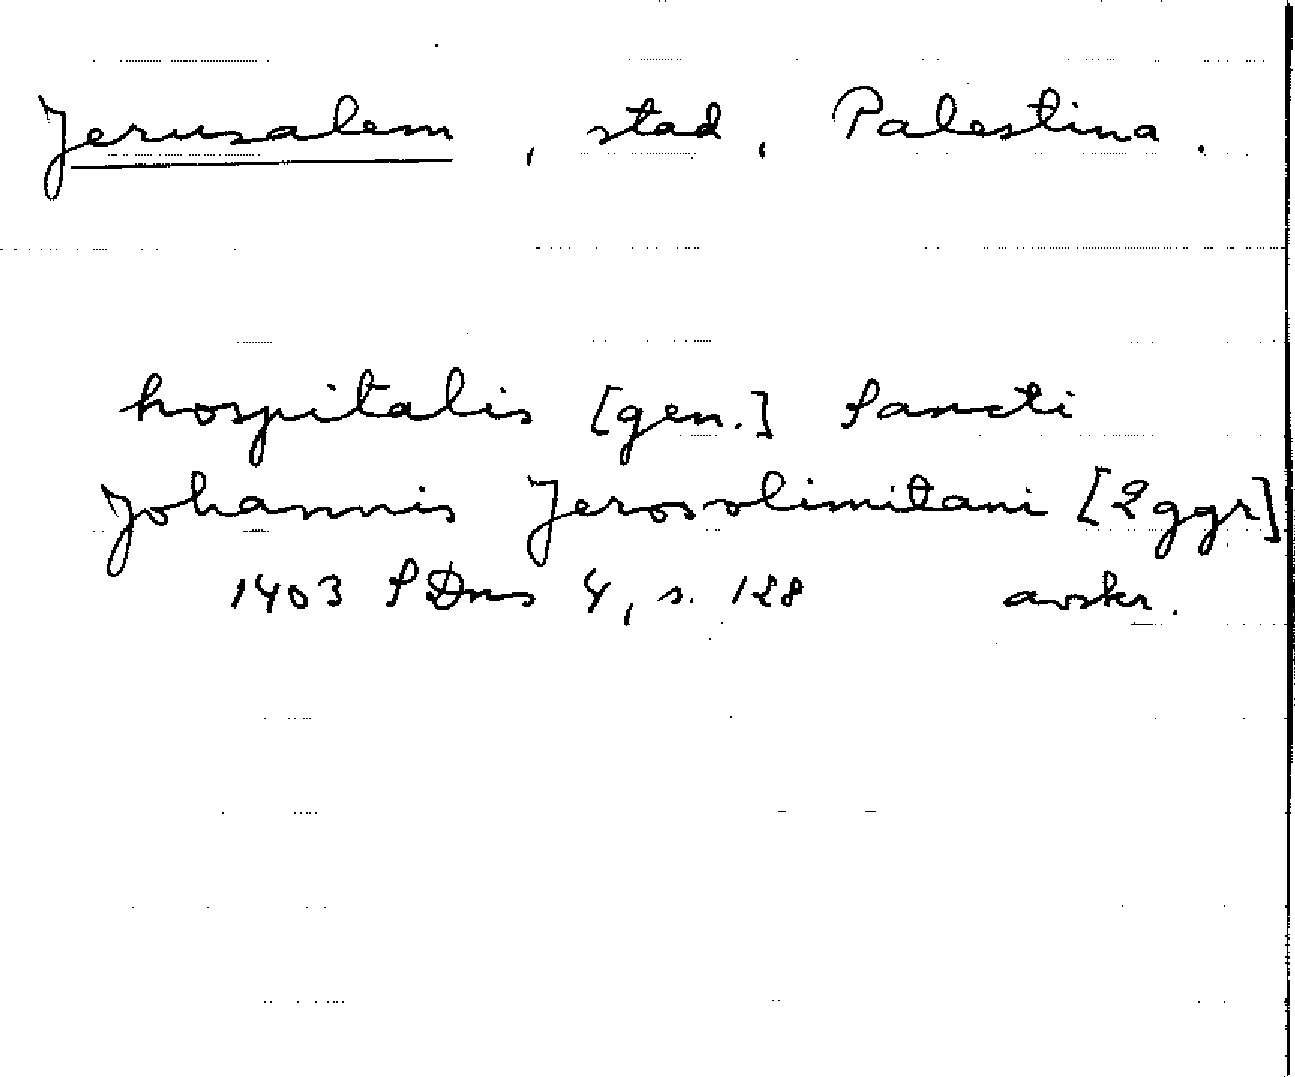 Jerusalem, stad, Palestina.
hospitalis [gen.] Sancti
Johannis Jerosolimitani [2 ggr]
1403 SDns 4, s. 128 avskr.